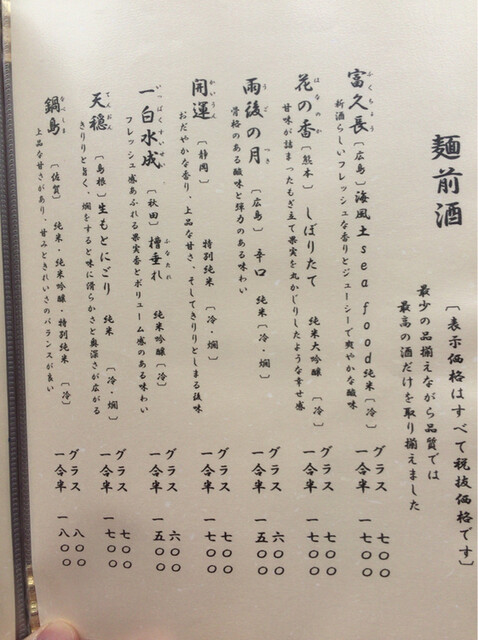 麺前酒
〔表示価格はすべて税抜価格です〕
最少の品揃えながら品質では
最高の酒だけを取り揃えました
富久長 ふくちょう 〔広島〕 海風土 sea food 純米〔冷〕 グラス 七〇〇
新酒らしいフレッシュな香りとジューシーで爽やかな酸味 一合半 一七〇〇
花の香 はなのか 〔熊本〕 しぼりたて 純米大吟醸〔冷〕 グラス 七〇〇
甘味が詰まったもぎ立て果実を丸かじりしたような幸せ感 一合半 一七〇〇
雨後の月 うごのつき 〔広島〕 辛口 純米〔冷・燗〕 グラス 六〇〇
骨格のある酸味と弾力のある味わい 一合半 一五〇〇
開運 かいうん 〔静岡〕 特別純米〔冷・燗〕 グラス 七〇〇
おだやかな香り、上品な甘さ、そしてきりりとしまる後味 一合半 一七〇〇
一白水成 いっぱくすいせい 〔秋田〕 槽垂れ ふなたれ 純米吟醸〔冷〕 グラス 六〇〇
フレッシュ感あふれる果実香とボリューム感のある味わい 一合半 一五〇〇
天穏 てんおん 〔島根〕 生もとにごり 純米〔冷・燗〕 グラス 七〇〇
きりりと旨く、燗をすると味に滑らかさと奥深さが広がる 一合半 一七〇〇
鍋島 なべしま 〔佐賀〕 純米・純米吟醸・特別純米〔冷〕 グラス 八〇〇
上品な甘さがあり、甘みときれいさのバランスが良い 一合半 一八〇〇